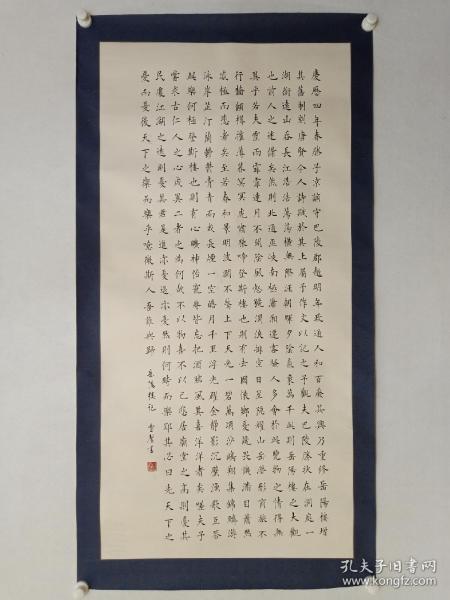 慶曆四年春滕子京謫守巴陵郡越明年政通人和百廢具興乃重修岳陽樓增
其舊制刻唐賢今人詩賦於其上屬予作文以記之予觀夫巴陵勝狀在洞庭一
湖銜遠山吞長江浩浩蕩蕩橫無際涯朝暉夕陰氣象萬千此則岳陽樓之大觀
也前人之述備矣然則北通巫峽南極瀟湘遷客騷人多會於此覽物之情得無
異乎若夫霪雨霏霏連月不開陰風怒號濁浪排空日星隱耀山岳潛形商旅不
行檣傾楫摧薄暮冥冥虎嘯猿啼登斯樓也則有去國懷鄉憂讒畏譏滿目蕭然
感極而悲者矣至若春和景明波瀾不驚上下天光一碧萬頃沙鷗翔集錦鱗游
泳岸芷汀蘭鬱鬱青青而或長煙一空皓月千里浮光躍金靜影沉璧漁歌互答
此樂何極登斯樓也則有心曠神怡寵辱皆忘把酒臨風其喜洋洋者矣嗟夫予
嘗求古仁人之心或異二者之為何哉不以物喜不以己悲居廟堂之高則憂其
民處江湖之遠則憂其君是進亦憂退亦憂然則何時而樂耶其必曰先天下之
憂而憂後天下之樂而樂乎噫微斯人吾誰與歸 岳陽樓記 書
孔夫子旧书网